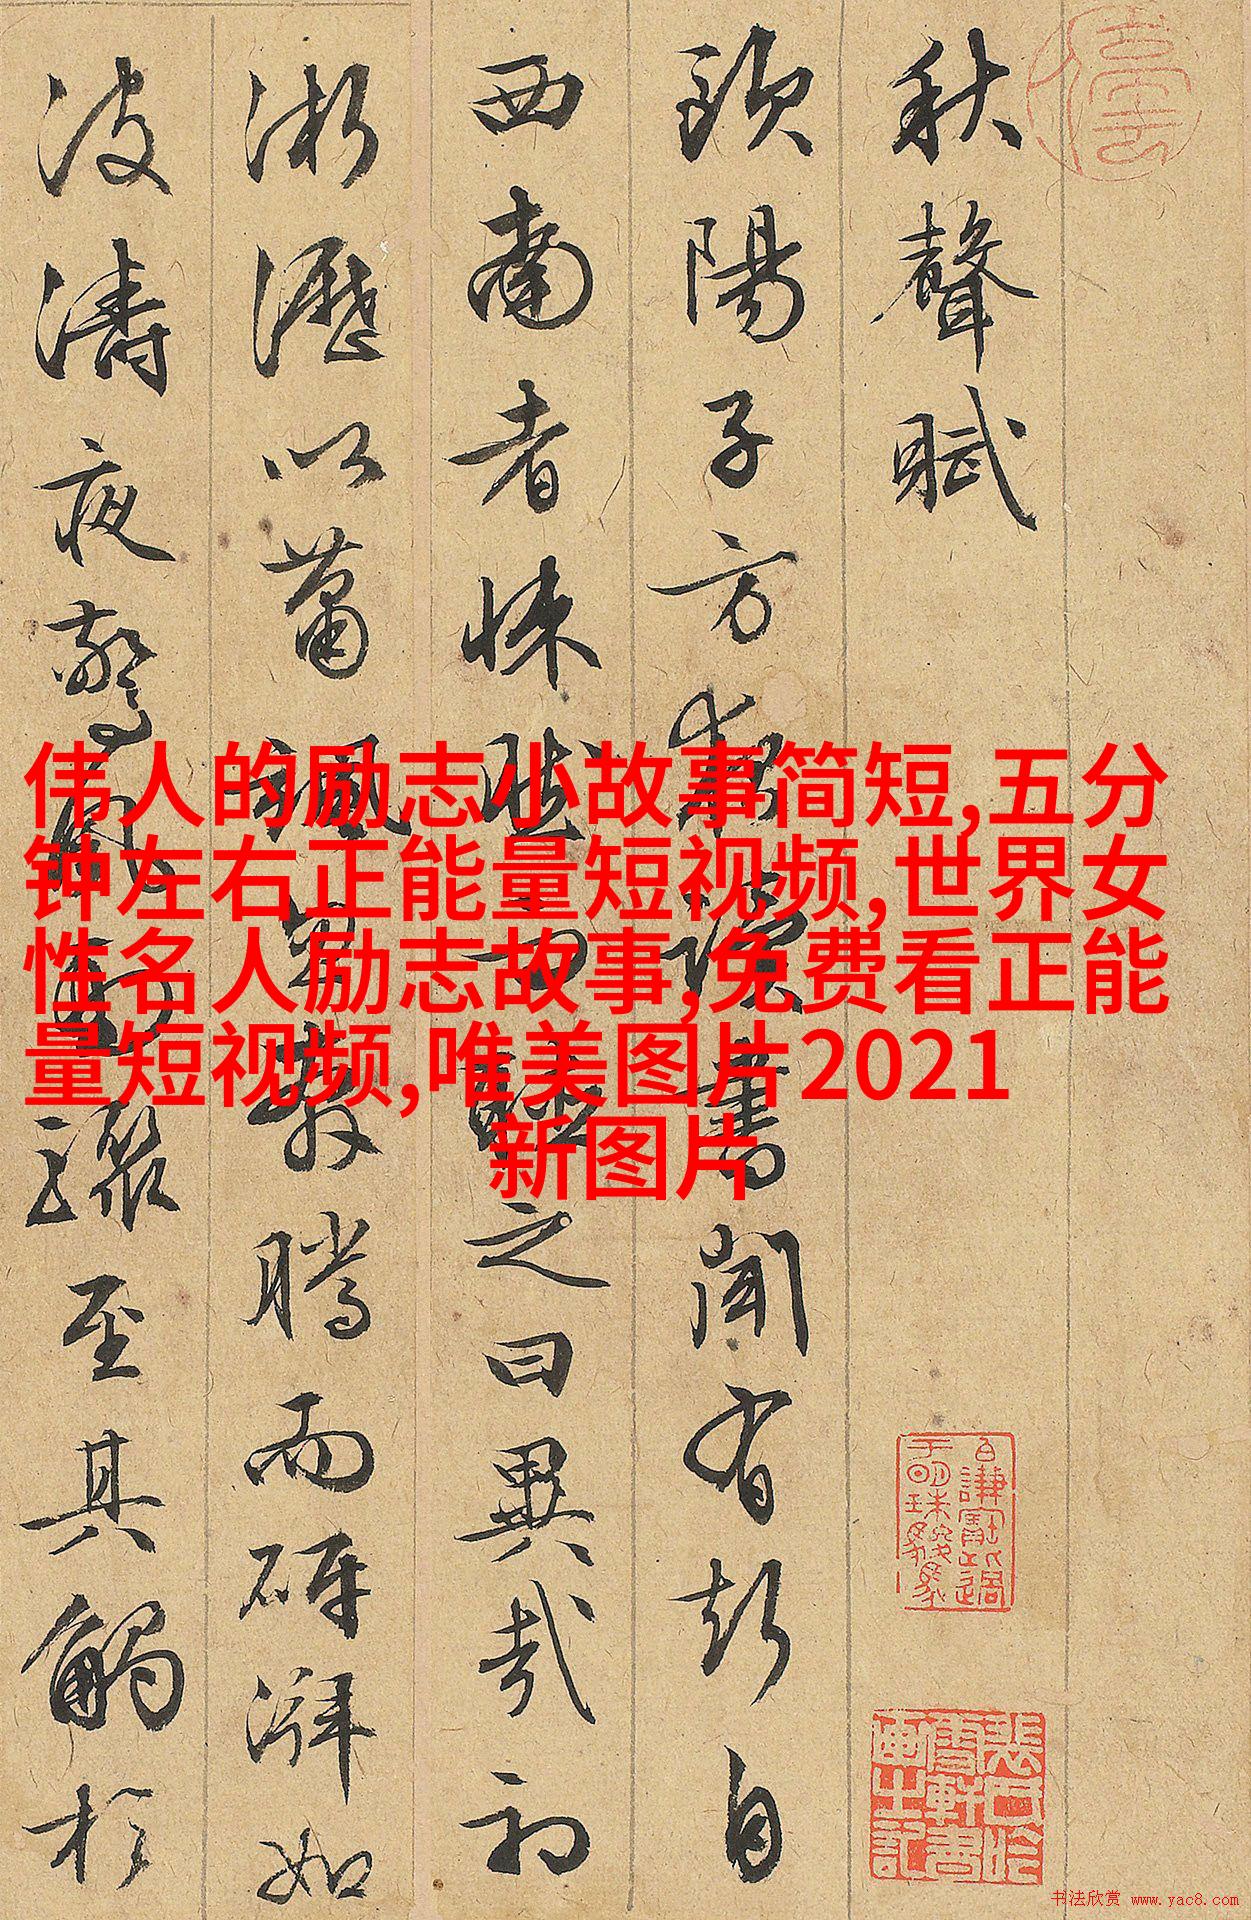 秋聲賦
歐陽子方夜讀書聞有聲自
西南者悚然而聽之曰異哉初
淅瀝以蕭颯忽奔騰而砰湃如
波濤夜驚風雨驟至其觸於
伟人的励志小故事简短,五分
钟左右正能量短视频,世界女
性名人励志故事,免费看正能
量短视频,唯美图片2021
新图片
书法欣赏 www.yac8.com